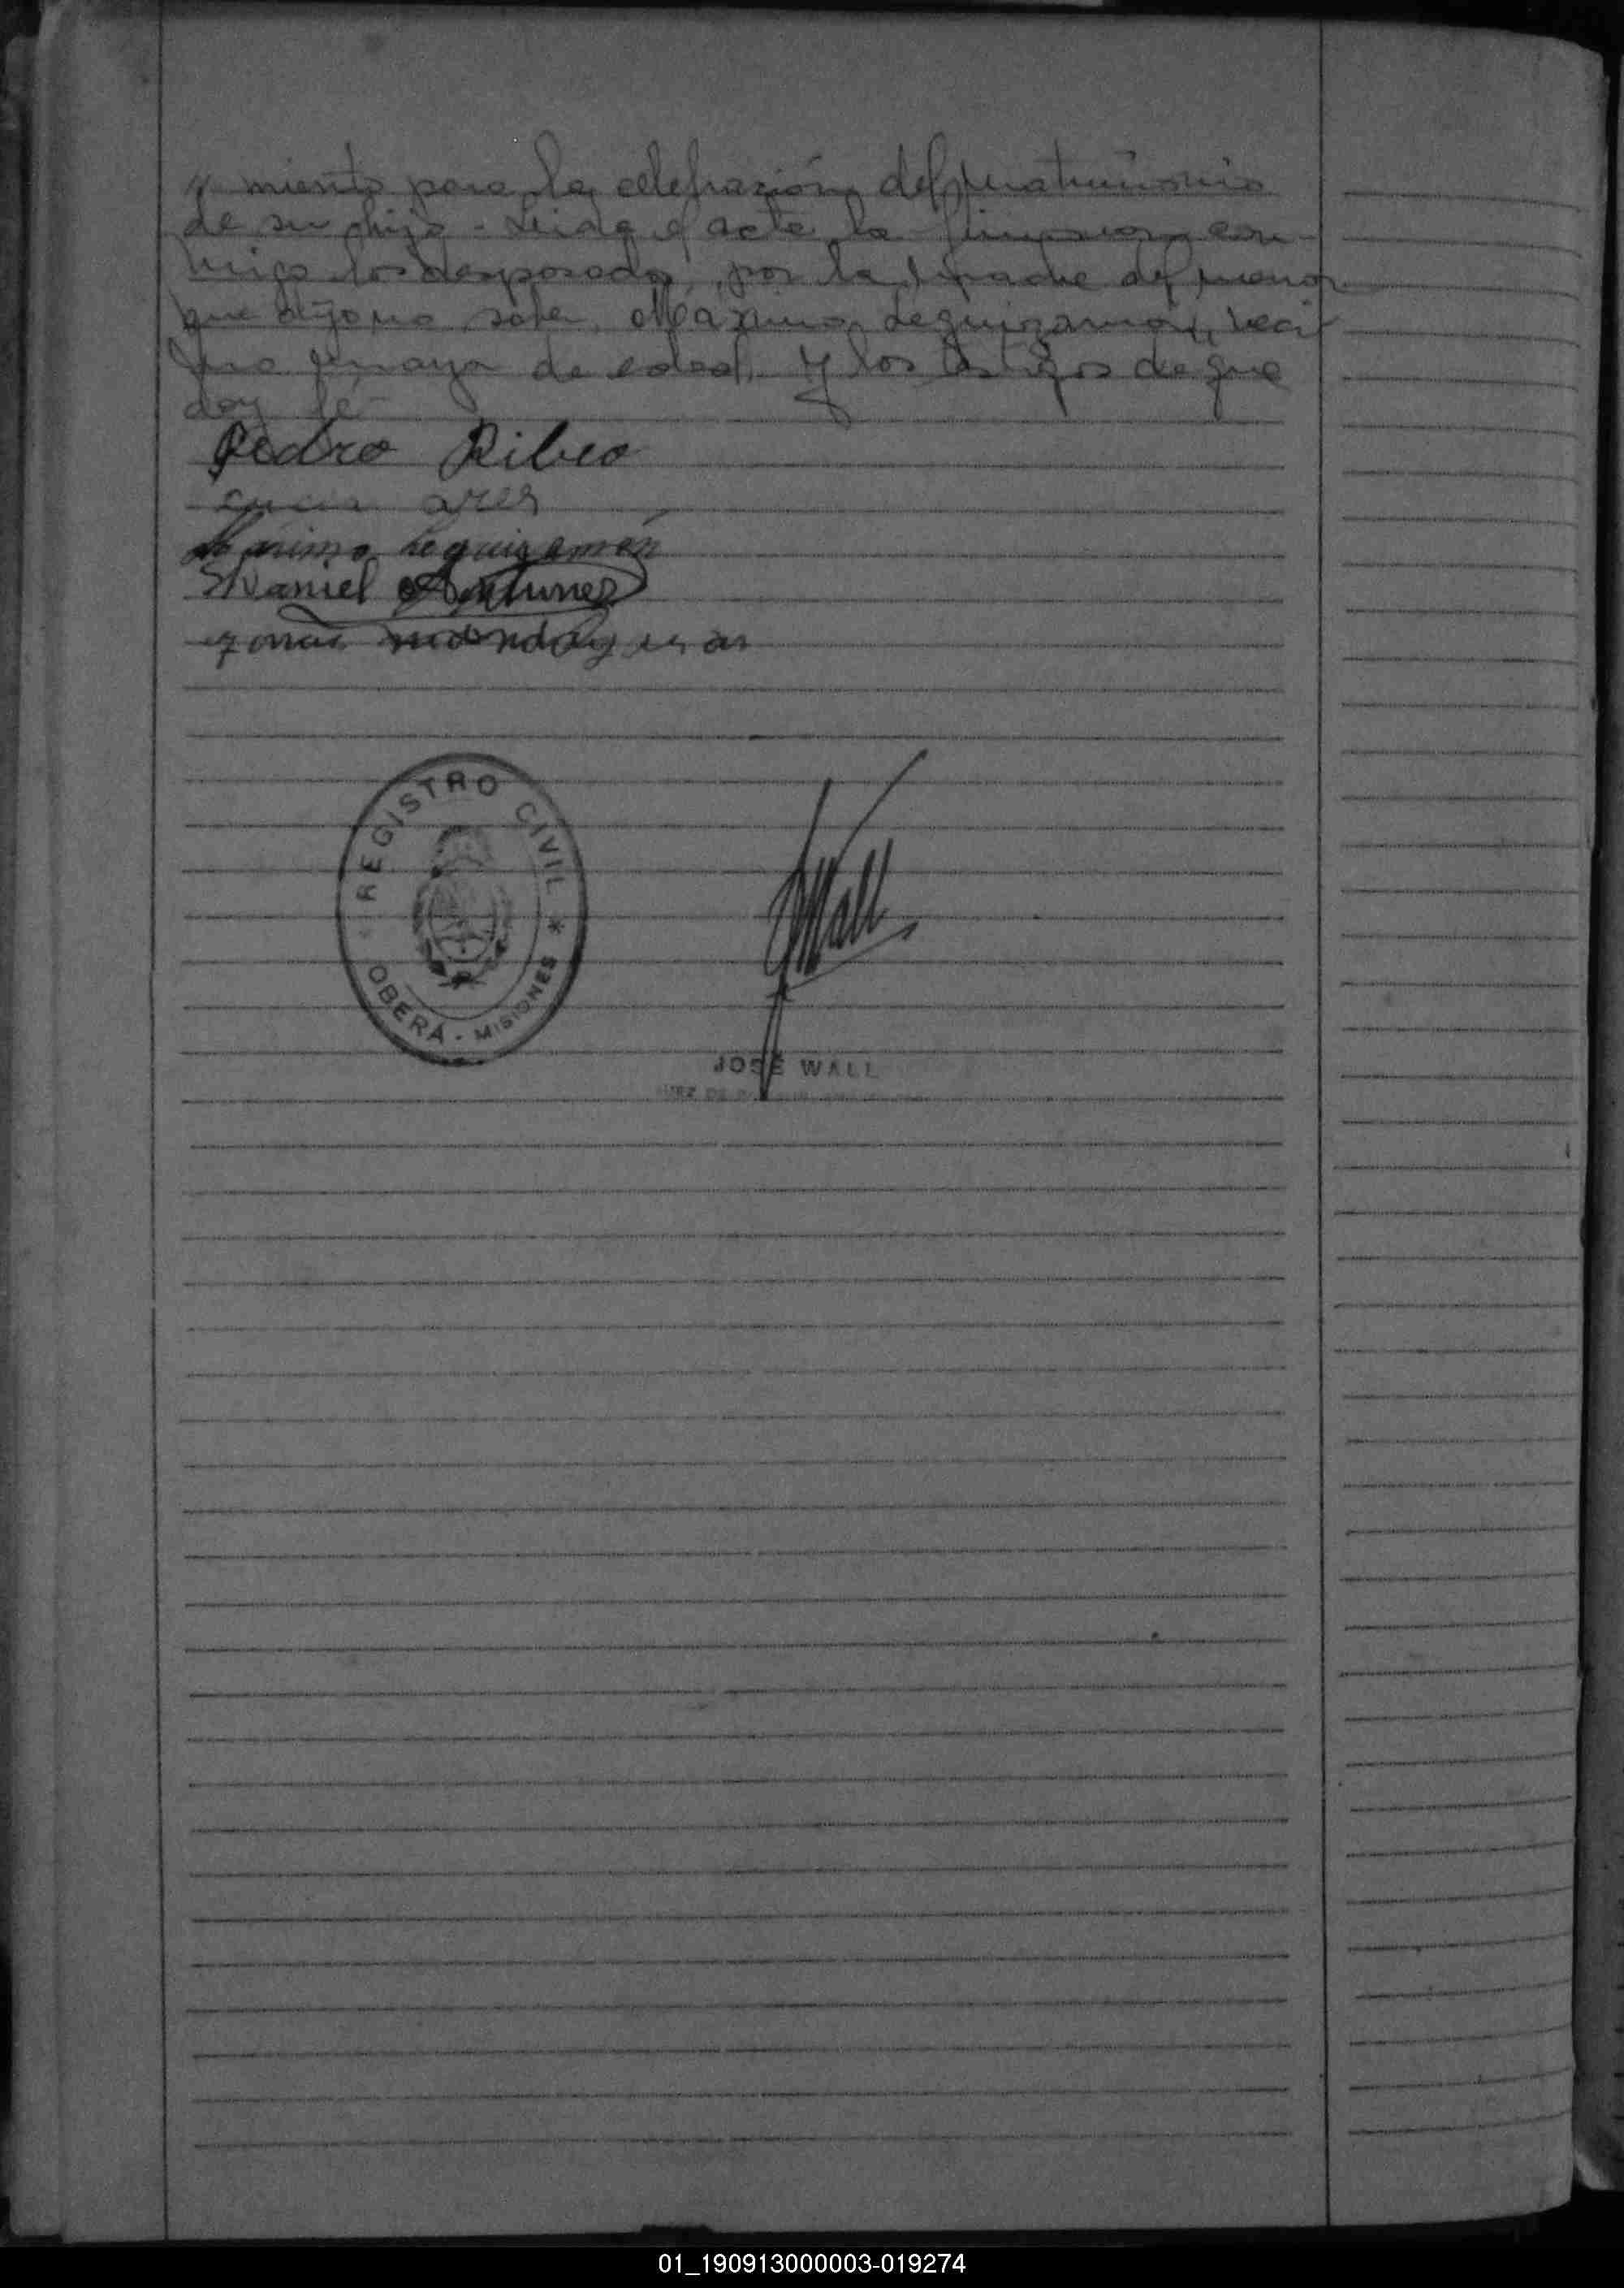 miento para la celebración del matrimonio
de su hijo - Leida el acta la firmaron con-
migo los desposados, por la madre del menor
que dijo no saber, Máximo Leguizamón, veci
no mayor de edad, y los testigos de que
doy fé
Pedro Ribeo
ares
Maximo Leguizamón
Daniel Antunez
REGISTRO CIVIL *
OBERÁ - MISIONES
JWall
JOSÉ WALL
JUEZ DE
01_190913000003-019274